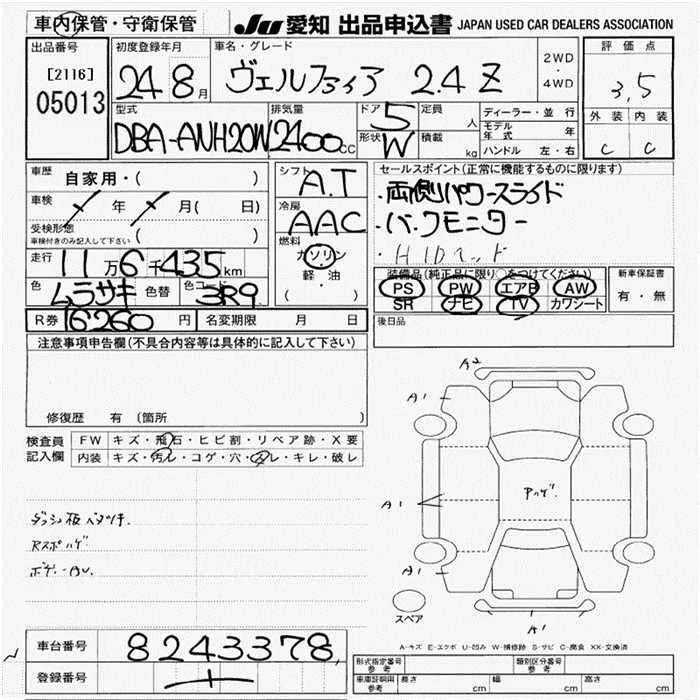 車内保管・守衛保管
JU 愛知 出品申込書 JAPAN USED CAR DEALERS ASSOCIATION
出品番号
[2116]
05013
初度登録年月
24 8月
車名・グレード
ヴェルファイア 2.4 Z
2WD
・
4WD
評価点
3.5
外装 内装
C C
型式
DBA-ANH20W
排気量
2400cc
ドア 5
形状 W
定員 人
積載 kg
ディーラー・並行
モデル年式 年
ハンドル 左・右
車歴 自家用・( )
車検 年 月( 日)
受検形態
車検付きのみ記入して下さい ( )
走行 11万6千435km
色 ムラサキ 色替 色コード 3R9
R券 16260円 名変期限 月 日
シフト A.T
冷房 AAC
燃料
ガソリン
軽・油
( )
セールスポイント(正常に機能するものに限ります)
・両側パワースライド
・バックモニター
・HIDヘッド
装備品(純正品に限り○をつけてください)
PS PW エアB AW
SR ナビ TV カワシート
新車保証書
有・無
後日品
注意事項申告欄(不具合内容等は具体的に記入して下さい)
修復歴 有(箇所 )
検査員
記入欄
FW キズ・飛石・ヒビ割・リペア跡・X要
内装 キズ・汚レ・コゲ・穴・スレ・キレ・破レ
ダッシュ板ベタツキ.
Rスポハゲ
A2
A1
A1
A1
A1
スペア
A-キズ E-エクボ U-凹み W-補修跡 S-サビ C-腐食 XX-交換済
車台番号 8243378
登録番号
形式指定番号
参考
類別区分番号
参考
車庫証明用
参考
長さ cm 幅 cm 高さ cm